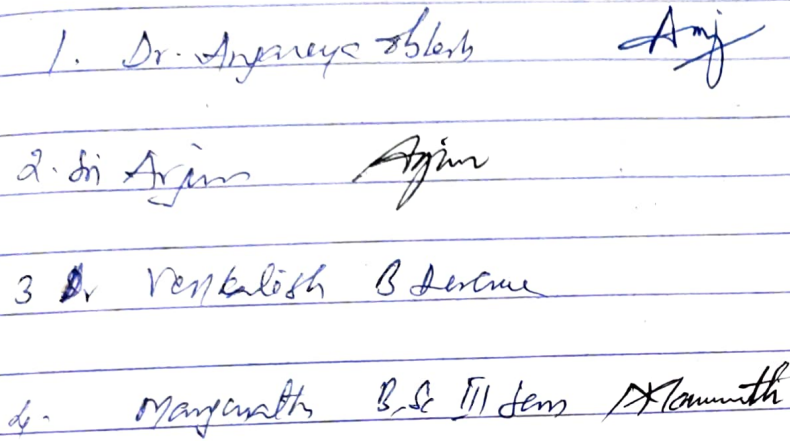 1. Dr. Anjaneya
2. Sri Arjun Arjun
3 Dr Venkatesh B
4. Manjunath B.Sc III Sem Manjunath